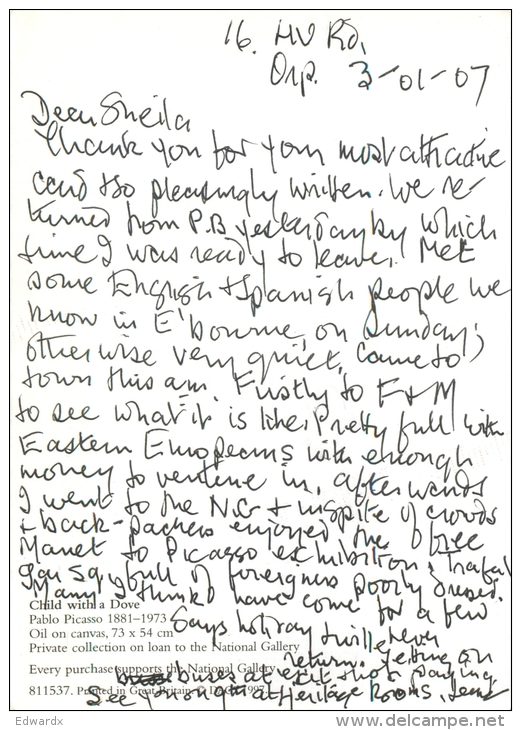 16. HV Rd,
Orp. 3-01-07
Dear Sheila
Thank you for your most attractive
card & so pleasingly written. We re-
turned from P.B yesterday by which
time I was ready to leave. Met
some English & Spanish people we
know in E'bourne, on Sunday;
otherwise very quiet. Came to
town this am. Firstly to F & M
to see what it is like. Pretty full with
Eastern Europeans with enough
money to venture in, afterwards
I went to the N.G & inspite of crowds
& back-packers enjoyed the free
Manet to Picasso exhibition. Trafal
gar Sq full of foreigners poorly dressed.
Many I think have come for a few
days holiday & will never
return. Getting on
buses at exit not paying
See you on at Heritage Rooms,
Child with a Dove
Pablo Picasso 1881–1973
Oil on canvas, 73 x 54 cm
Private collection on loan to the National Gallery
Every purchase supports the National Gallery
811537. Printed in Great Britain. © DACS 1997
Edwardx
delcampe.net